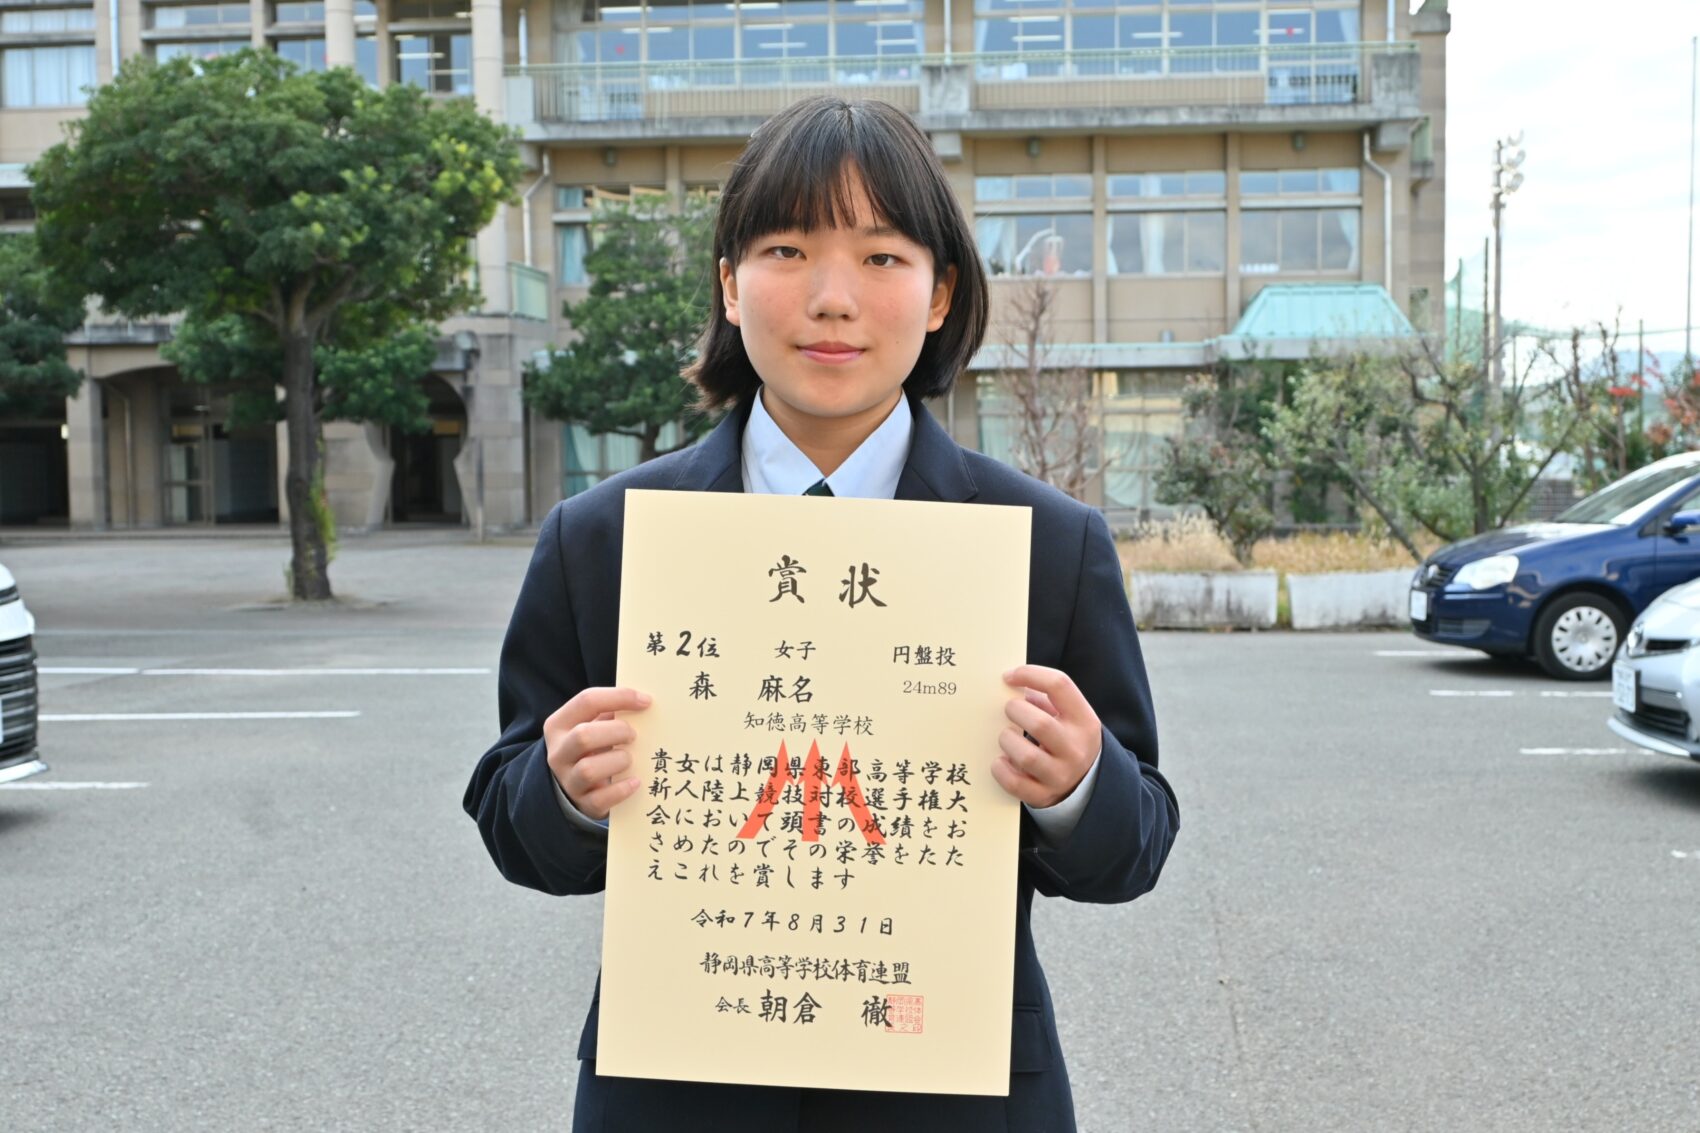 賞状
第2位 女子 円盤投
森 麻名 24m89
知徳高等学校
貴女は静岡県東部高等学校
新人陸上競技対校選手権大
会において頭書の成績をお
さめたのでその栄誉をたた
えこれを賞します
令和7年8月31日
静岡県高等学校体育連盟
会長 朝倉 徹